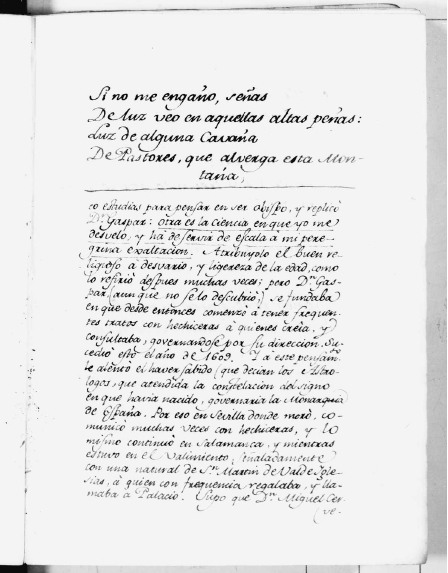 Si no me engaño, señas
De luz veo en aquellas altas peñas:
Luz de alguna Cavaña
De Pastores, que alverga esta Mon-
taña,
co estudias para pensar en ser obispo, y replicò
Dn. Gaspar: otra es la ciencia en que yo me
desvelo, y hà de servir de escala à mi pere-
grina exaltacion. Atribuyolo el buen re-
ligioso à desvario, y ligereza de la edad, como
lo refiriò despues muchas veces; pero Dn. Gas-
par (aunque no se lo descubriò) se fundaba
en que desde entonces comenzò à tener frequen-
tes tratos con hechiceras à quienes creia, y
consultaba, governandose por su direccion. Su-
cediò esto el año de 1609. Y à este pensam.
le alentò el haver sabido (que decian los Astro-
logos, que atendida la constelacion del signo
en que havia nacido, governaria la Monarquia
de España. Por eso en Sevilla donde morò, co-
municò muchas veces con hechiceras, y lo
mismo continuò en Salamanca, y mientras
estuvo en el Valimiento; señaladamente
con una natural de Sn. Martin de Valde Igle-
sias, à quien con frequencia regalaba, y lla-
maba à Palacio. Supo que Dn. Miguel Cer-
(ve-